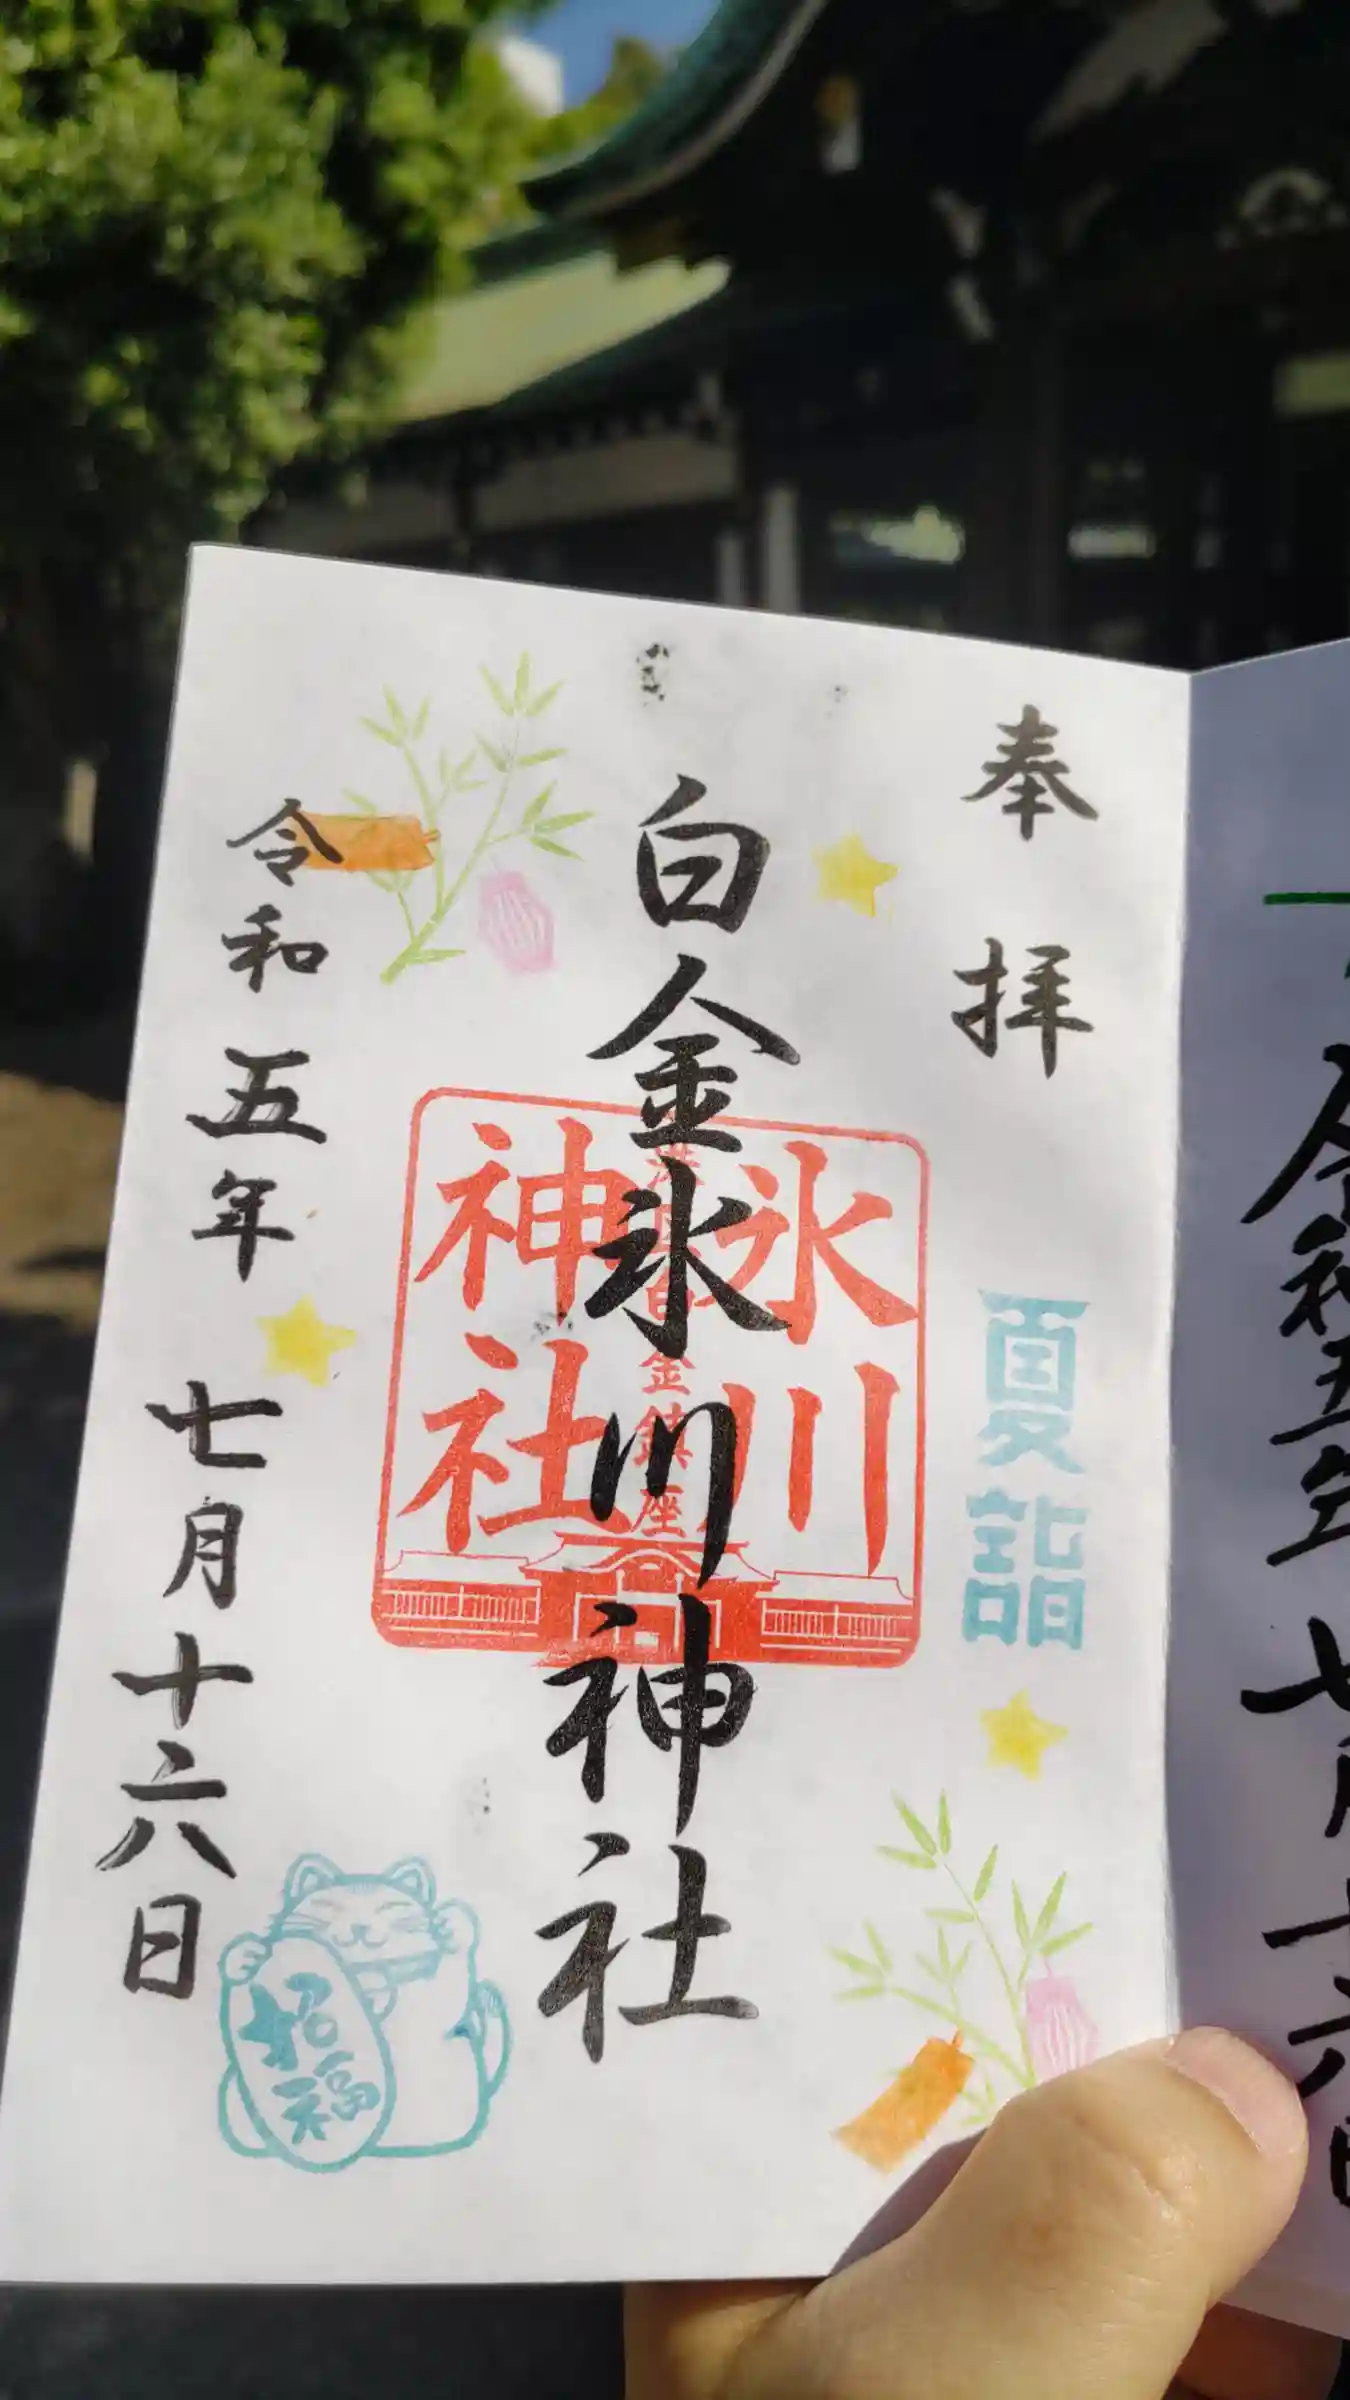 奉拝
夏詣
白金氷川神社
氷川
神社
金鎮座
令和五年七月十六日
招福
令和五年七月十六日